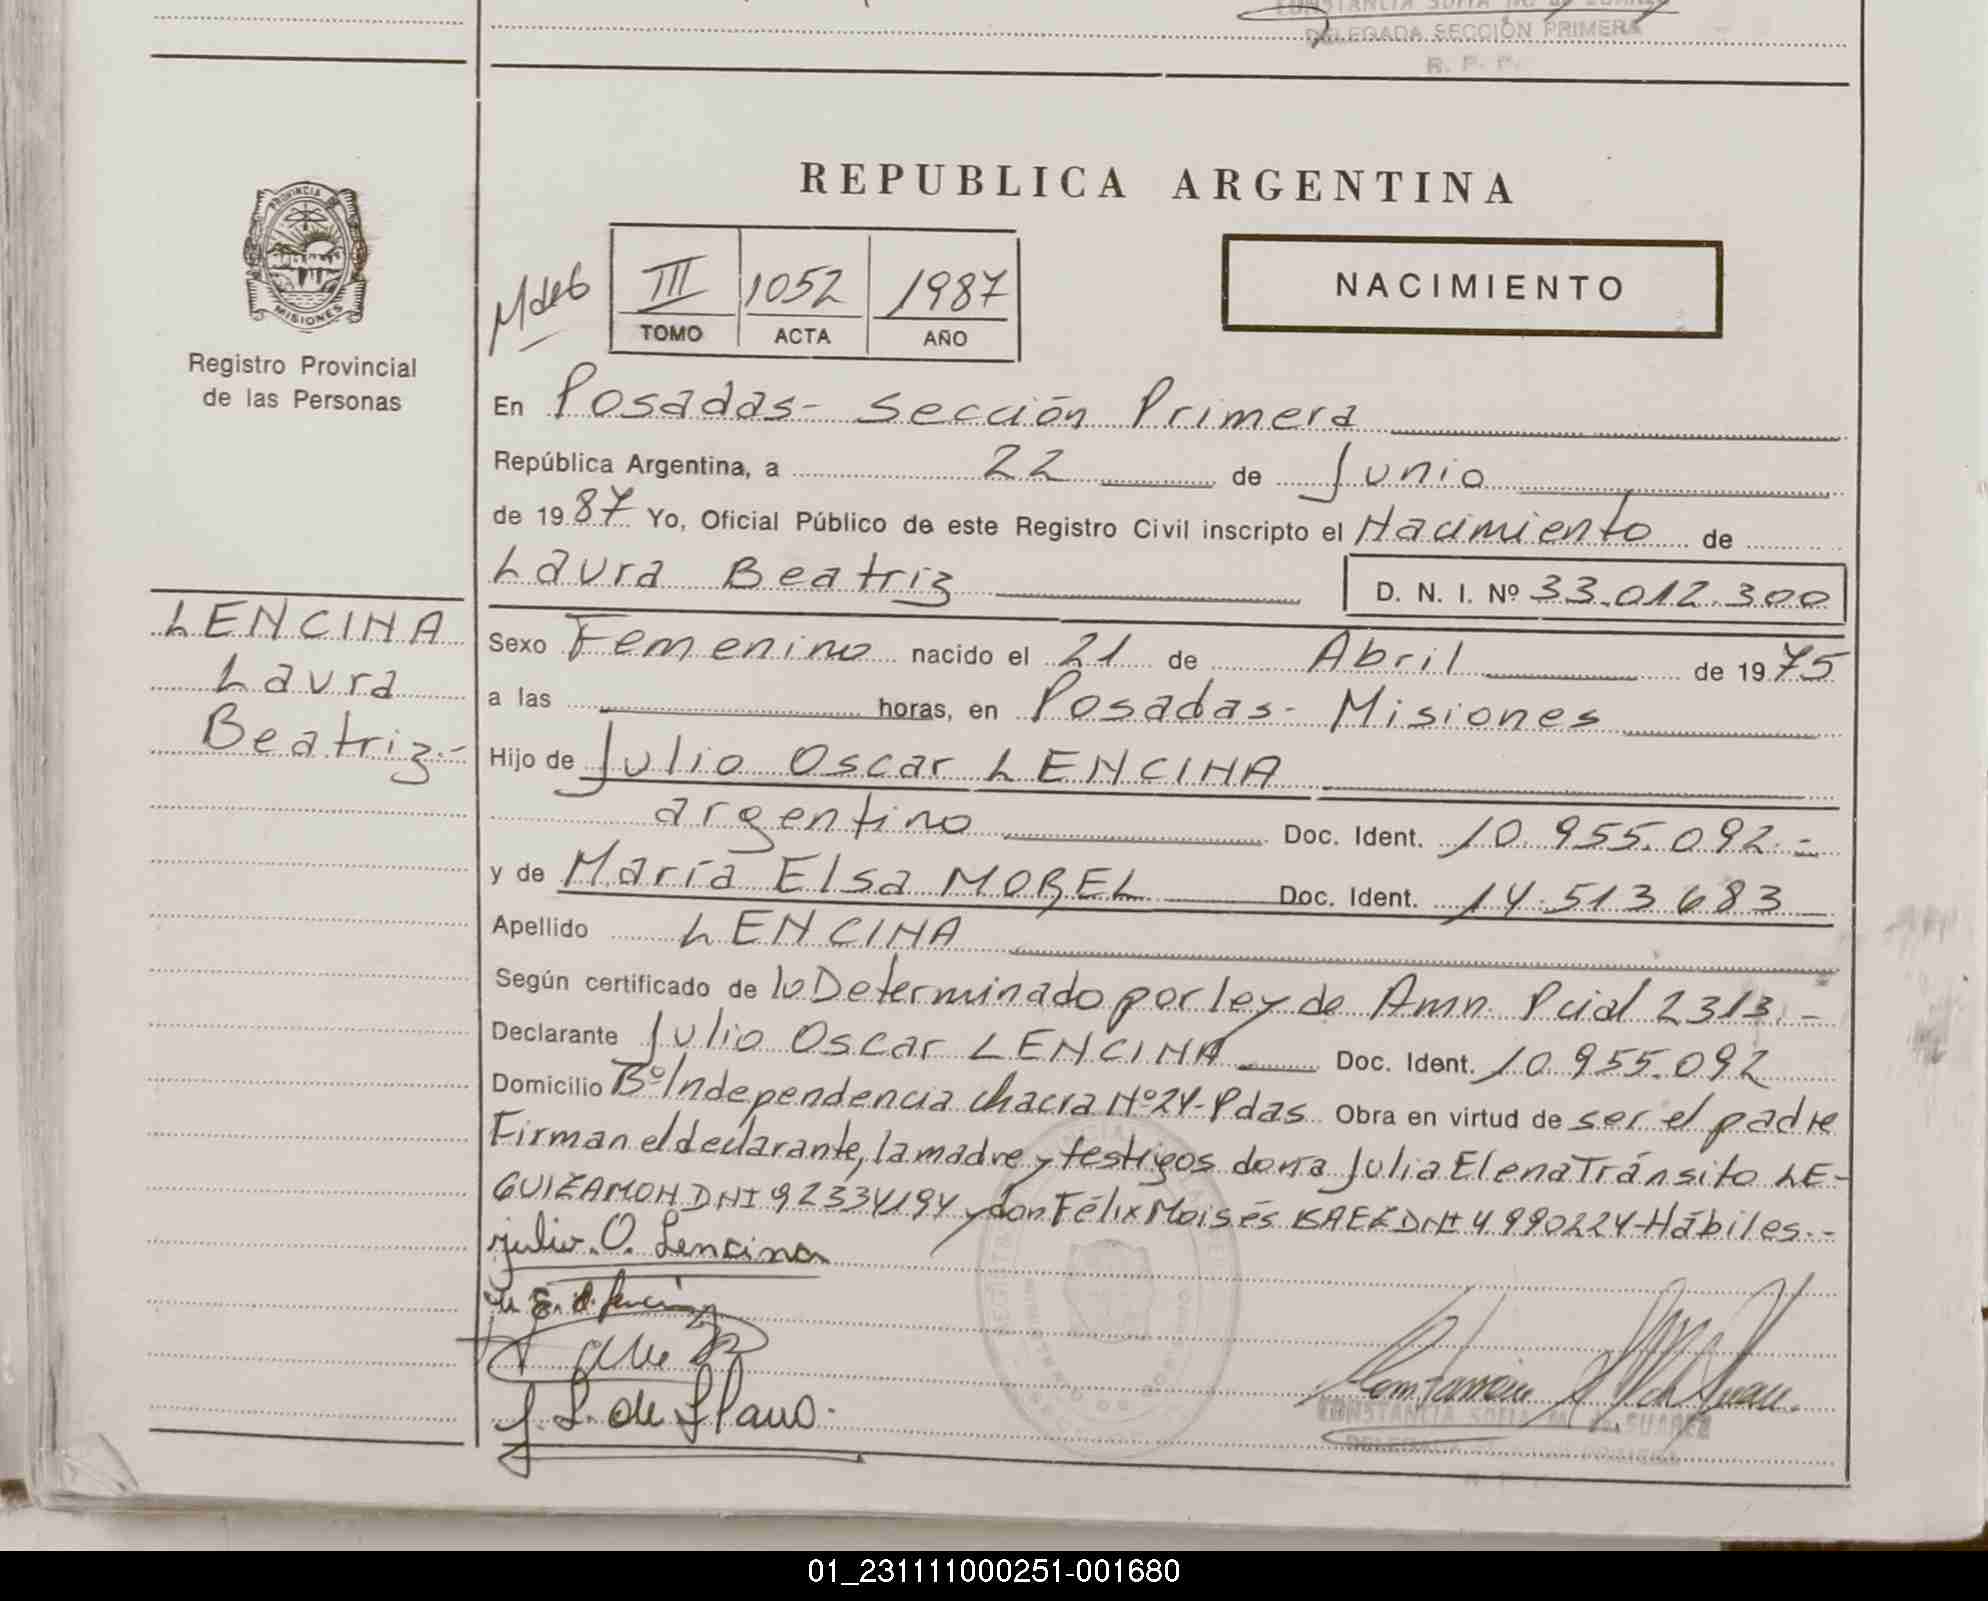 DELEGADA SECCIÓN PRIMERA
R. P. P.
PROVINCIA
MISIONES
Registro Provincial
de las Personas
LENCINA
Laura
Beatriz.-
REPUBLICA ARGENTINA
III 1052 1987
TOMO ACTA AÑO
NACIMIENTO
En Posadas- Sección Primera
República Argentina, a 22 de Junio
de 1987 Yo, Oficial Público de este Registro Civil inscripto el Nacimiento de
Laura Beatriz D. N. I. Nº 33.012.300
Sexo Femenino nacido el 21 de Abril de 1975
a las horas, en Posadas- Misiones
Hijo de Julio Oscar LENCINA
argentino Doc. Ident. 10.955.092.-
y de María Elsa MOREL Doc. Ident. 14.513.683
Apellido LENCINA
Según certificado de lo Determinado por ley de Amn. Pcial 2313.-
Declarante Julio Oscar LENCINA Doc. Ident. 10.955.092
Domicilio Bº Independencia chacra Nº24-Pdas Obra en virtud de ser el padre
Firman el declarante, la madre y testigos doña Julia Elena Tránsito LE-
GUIZAMON DNI 92334194 y don Félix Moisés DNI 4.990224-Hábiles.-
Julio. O. Lencina
J. L. de Llano.
CONSTANCIA SOFIA M. de SUAREZ
DELEGADA SECCIÓN PRIMERA
01_231111000251-001680